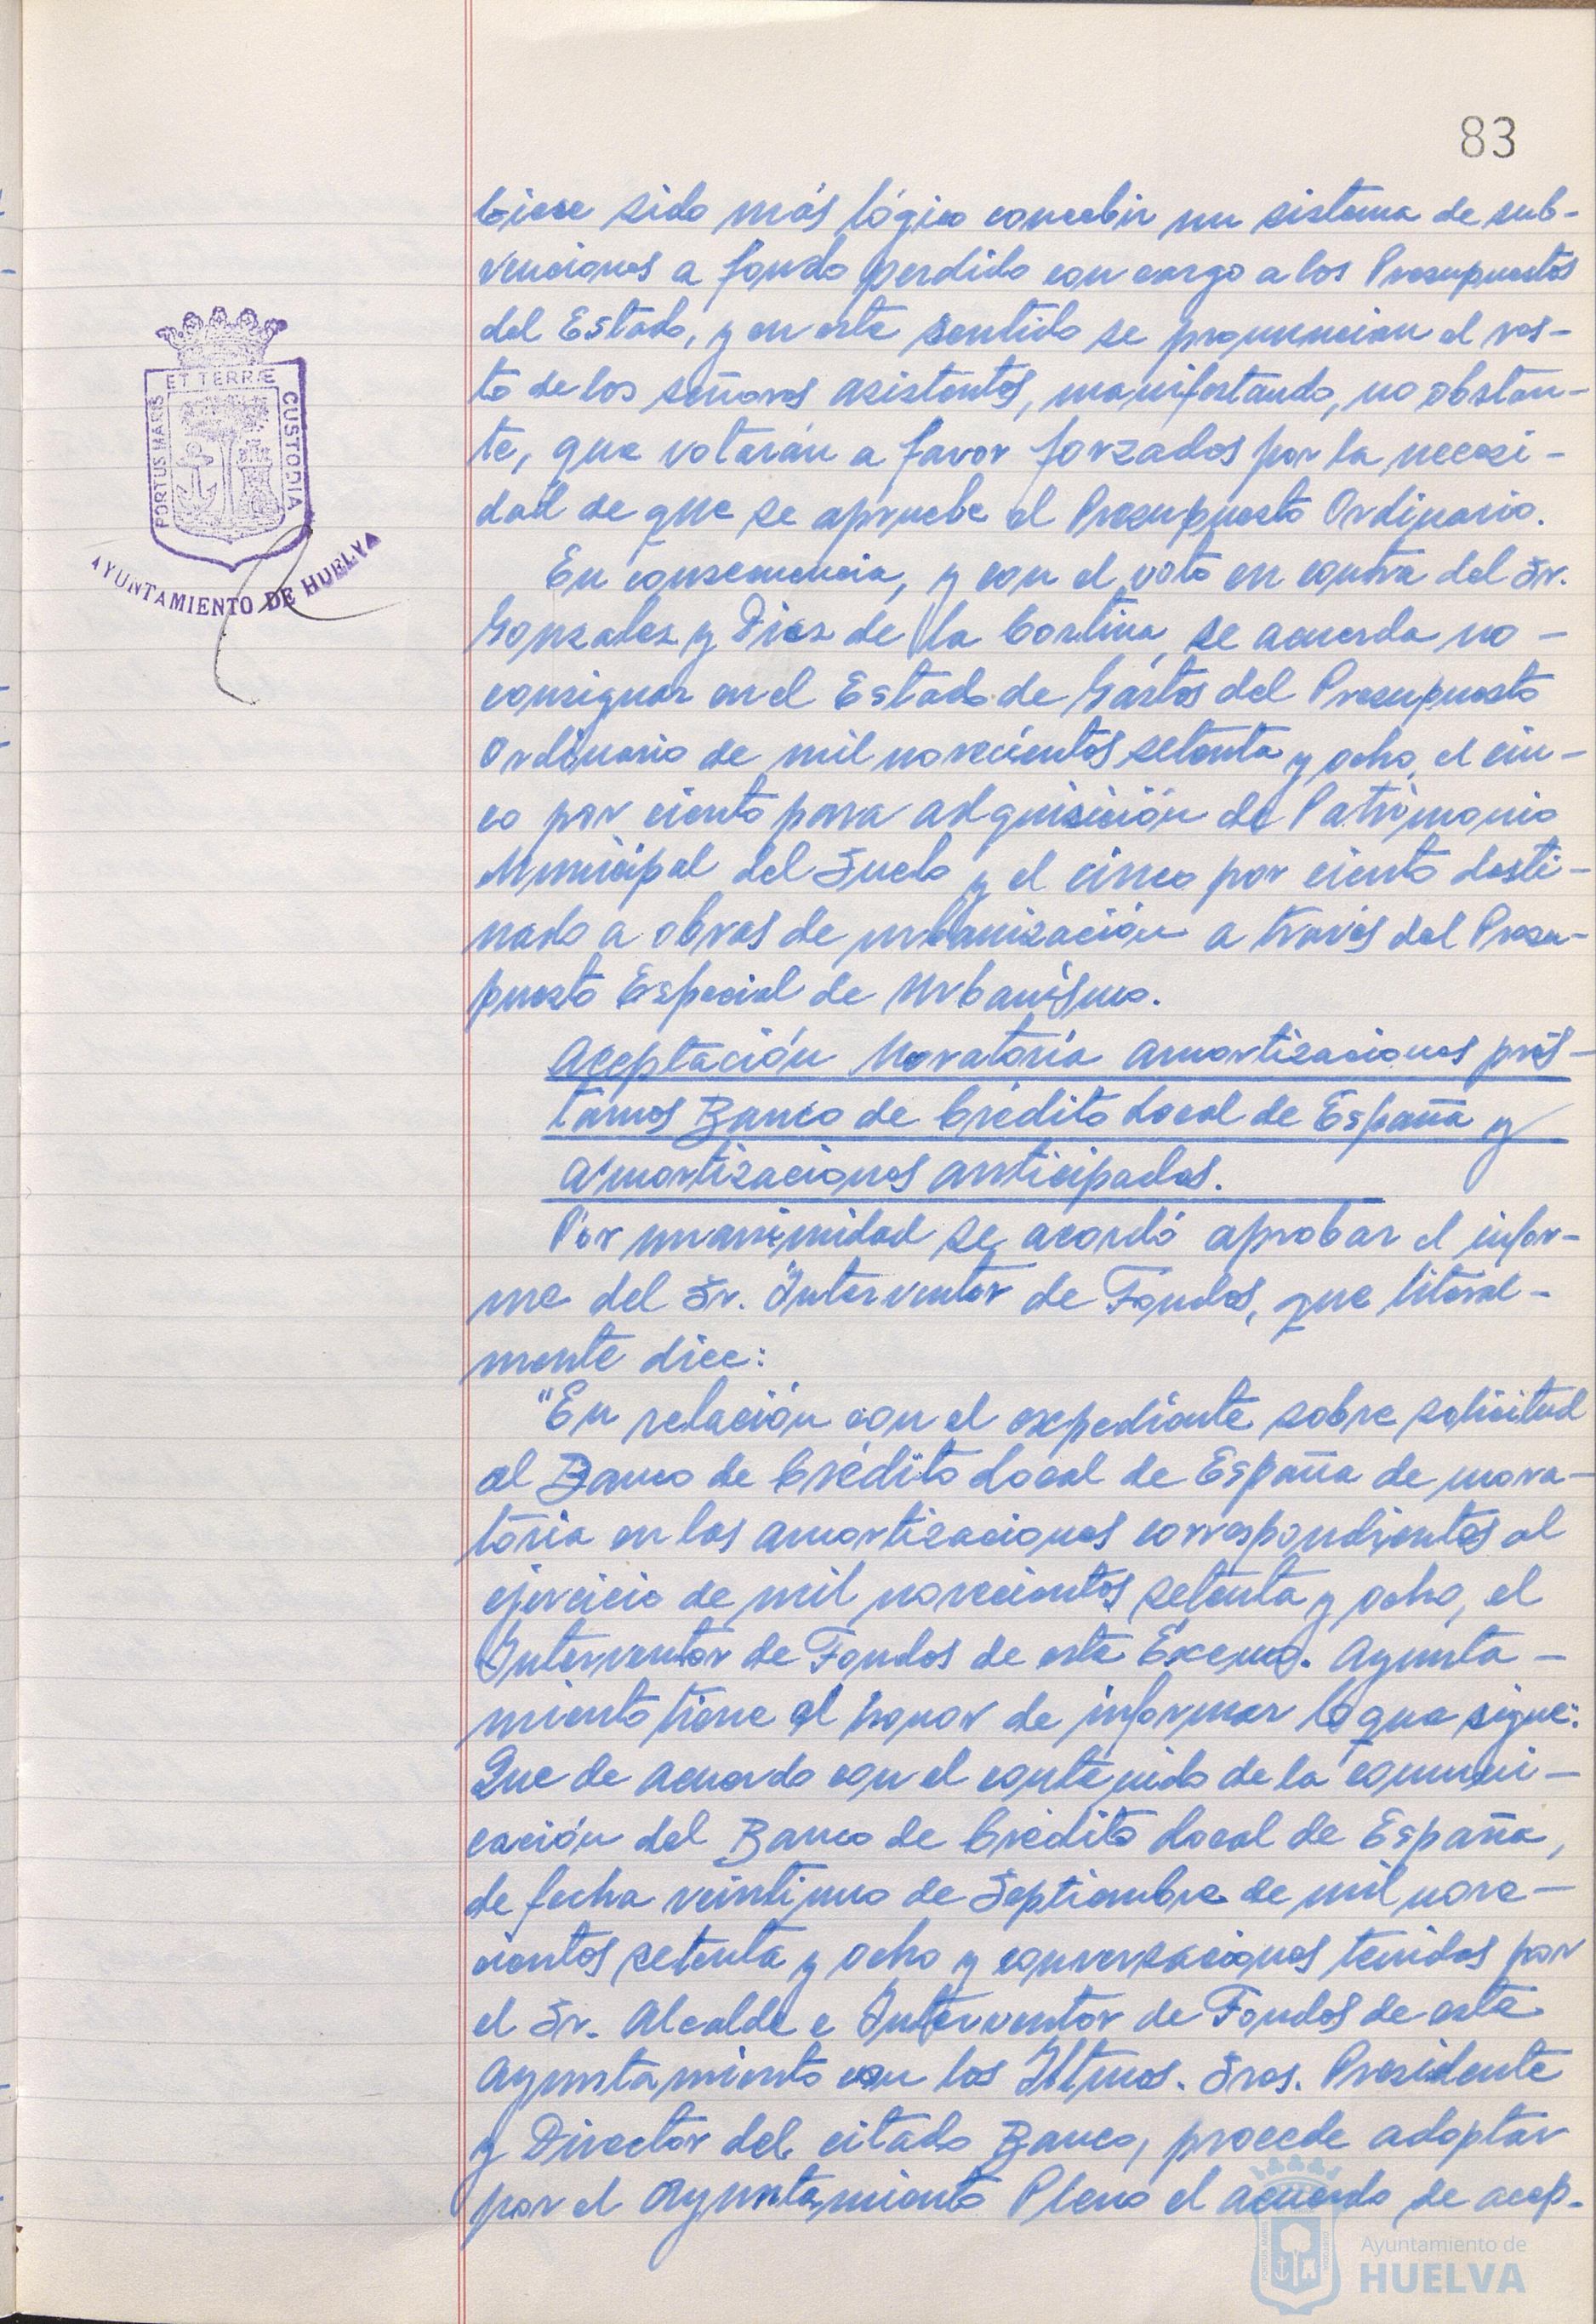 83
biese sido más lógico concebir un sistema de sub-
venciones a fondo perdido con cargo a los Presupuestos
del Estado, y en este sentido se pronuncian el res-
to de los señores asistentes, manifestando, no obstan-
te, que votarán a favor forzados por la necesi-
dad de que se apruebe el Presupuesto Ordinario.
En consecuencia, y con el voto en contra del Sr.
Gonzalez y Diez de la Cortina, se acuerda no -
consignar en el Estado de Gastos del Presupuesto
Ordinario de mil novecientos setenta y ocho, el cin-
co por ciento para adquisición de Patrimonio
Municipal del Suelo y el cinco por ciento desti-
nado a obras de urbanización a través del Presu-
puesto Especial de Urbanismo.
Aceptación Moratoria amortizaciones prés-
tamos Banco de Crédito Local de España y
amortizaciones anticipadas.
Por unanimidad se acordó aprobar el infor-
me del Sr. Interventor de Fondos, que literal-
mente dice:
"En relación con el expediente sobre solicitud
al Banco de Crédito Local de España de mora-
toria en las amortizaciones correspondientes al
ejercicio de mil novecientos setenta y ocho, el
Interventor de Fondos de este Excmo. Ayunta-
miento tiene el honor de informar lo que sigue:
Que de acuerdo con el contenido de la comuni-
cación del Banco de Crédito Local de España,
de fecha veintiuno de Septiembre de mil nove-
cientos setenta y ocho y conversaciones tenidas por
el Sr. Alcalde e Interventor de Fondos de este
Ayuntamiento con los Iltmos. Sres. Presidente
y Director del citado Banco, procede adoptar
por el Ayuntamiento Pleno el acuerdo de acep-
PORTUS MARIS ET TERRÆ CUSTODIA
AYUNTAMIENTO DE HUELVA
Ayuntamiento de
HUELVA